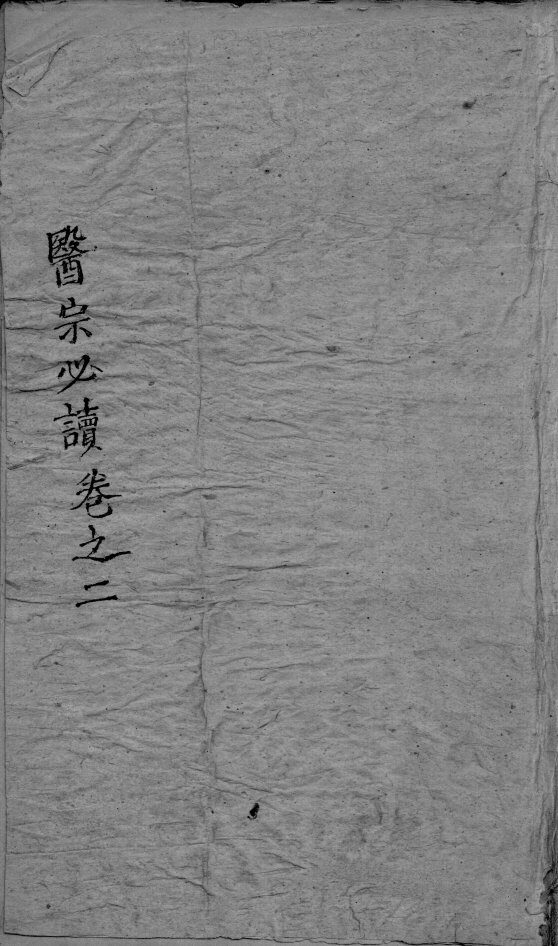 醫宗必讀卷之二